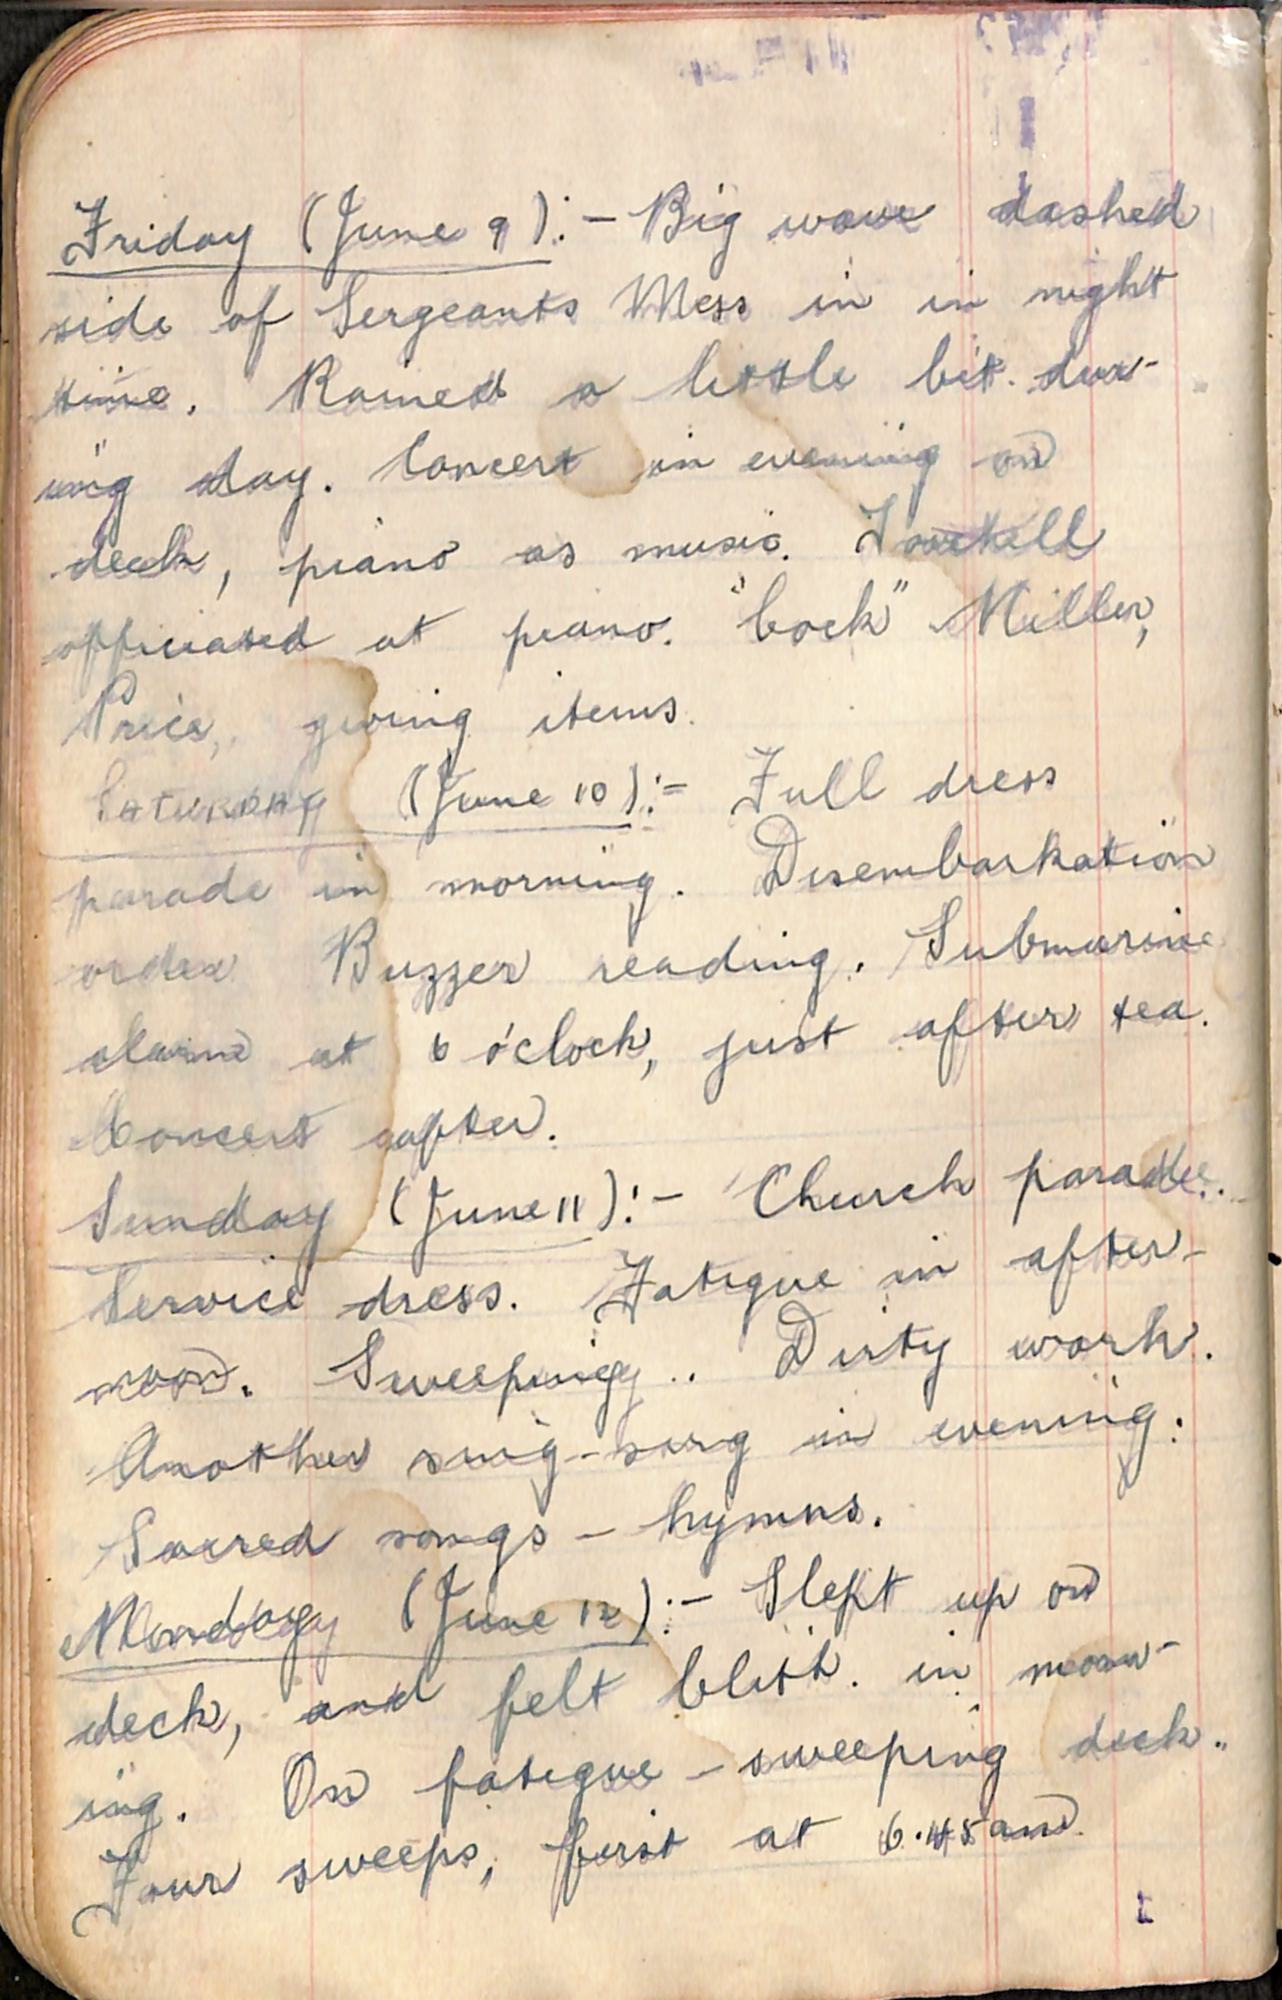 Friday (June 9):- Big wave dashed
side of Sergeants Mess in in night
time. Rained a little bit dur-
ing day. Concert in evening on
deck, piano as music.
officiated at piano. "Cock" Miller,
Price, giving items.
SATURDAY (June 10):- Full dress
parade in morning. Disembarkation
order Buzzer reading. Submarine
alarm at 6 o'clock, just after tea.
Concert after.
Sunday (June 11):- Church parade.
Service dress. Fatigue in after-
noon. Sweeping.. Dirty work.
Another sing-song in evening.
Sacred songs - hymns.
Monday (June 12):- Slept up on
deck, and felt in morn-
ing. On fatigue - sweeping deck.
Four sweeps, first at 6.45am